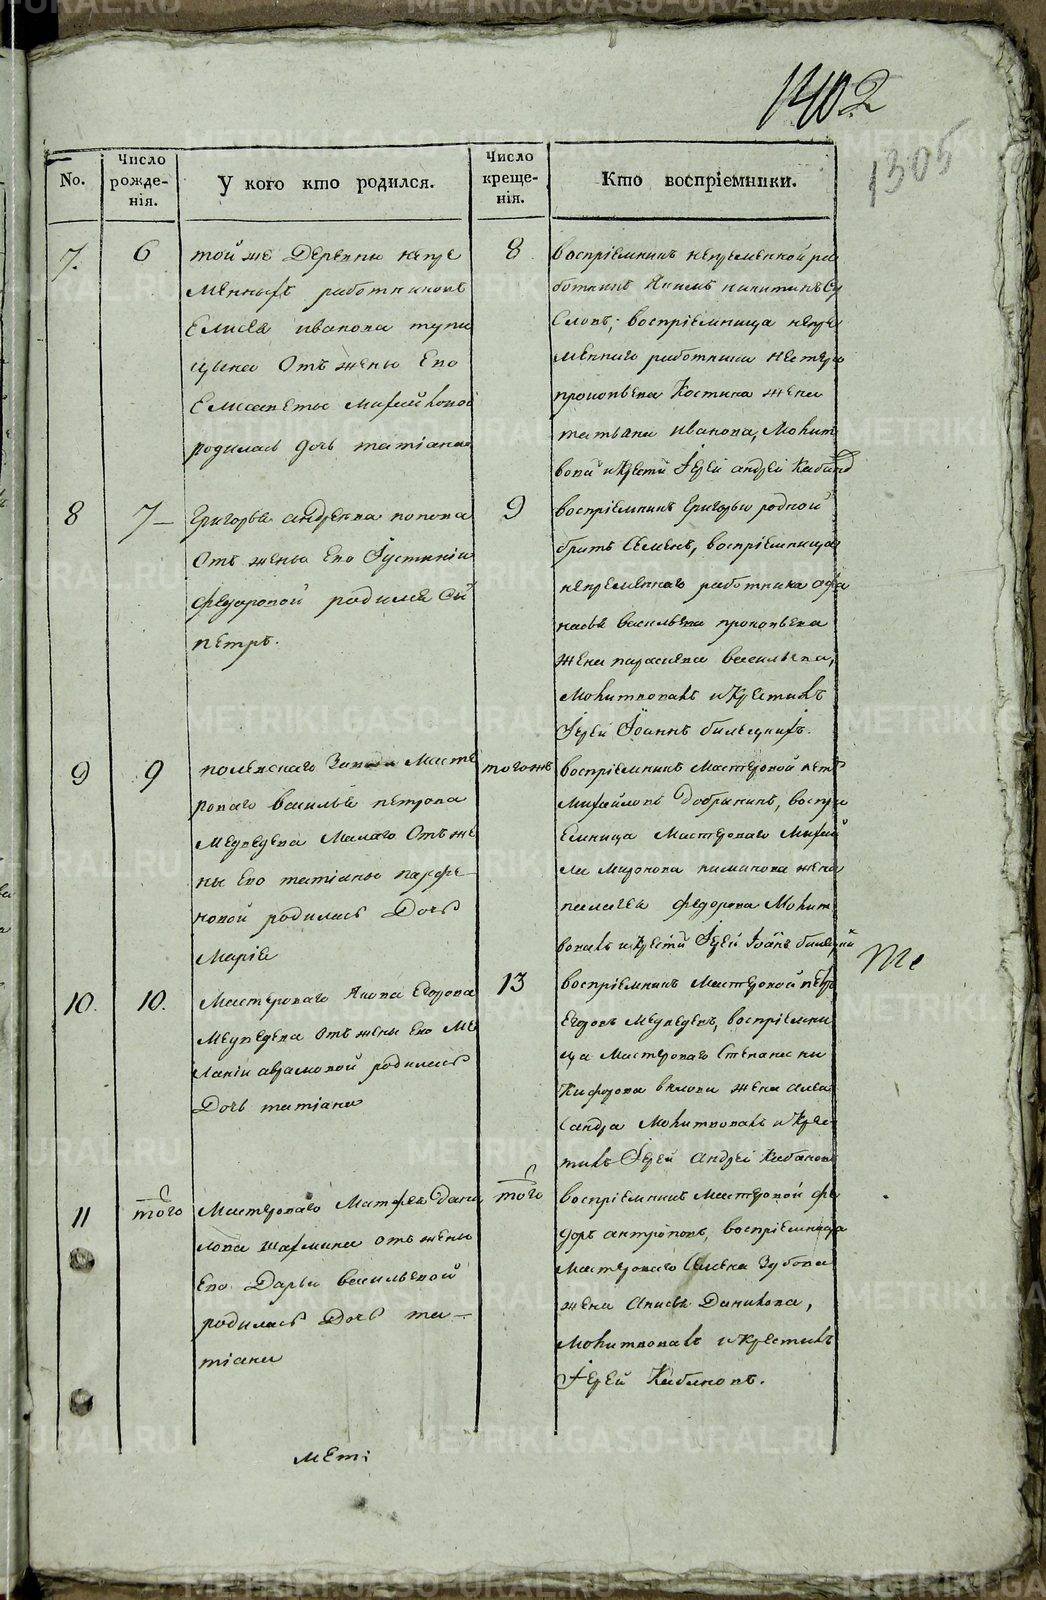 1402
1305
No.
Число рожде-
нія.
У кого кто родился.
Число креще-
нія.
Кто воспріемники.
7.
6
той же деревни непре
менныхъ работниковъ
Елисея иванова тупи
цына Отъ жены Его
Елисаветы михайловой
родилась дочь татіанна
8
воспріемникъ непременной ра
ботникъ Якимъ никитинъ
воспріемница непре
меннаго работника нестера
прокопьева Костина жена
татьяна иванова, Молит
вовал и Крестил Іерей андрей Кабанов
8
7
григорья андреева попова
Отъ жены Его Іустиніи
федоровой родился Сын
петръ.
9
воспріемникъ григорья родной
братъ Семенъ, воспріемница
непременнаго работника афа
насья васильева прокопьева
жена парасковья васильева,
Молитвовалъ и Крестилъ
Іерей Іоаннъ
9
9
полевскаго Завода Масте
роваго василья петрова
Медведева Малаго Отъ же
ны Его татіаны парфе-
новой родилась Дочь
Марія
тогожъ
воспріемникъ Мастеровой петръ
Михайловъ Добрынинъ, воспри
емница Мастероваго Михай
ла миронова жена
пелагея федорова Молит
вовалъ и Крестил Іерей Іоанъ
10.
10.
Мастероваго Якова Егорова
Медведева Отъ жены Его Ме
ланіи аврамовой родилась
Дочь татіана
13
воспріемникъ Мастеровой петръ
Егоровъ Медведевъ, воспріемни
ца Мастероваго Степана ни
кифорова жена алек
сандра Молитвовалъ и Крес
тилъ Іерей андрей Кабановъ
11
того
Мастероваго Матфея Дани
лова шахмина отъ жены
Его Дарьи васильевой
родилась Дочь та-
тіана
того
воспріемникъ мастеровой фе
доръ антроповъ, воспріемница
Мастероваго Семена Зубова
жена анисья Данилова,
Молитвовалъ и Крестилъ
Іерей Кабановъ.
мет:
METRIKI.GASO-URAL.RU